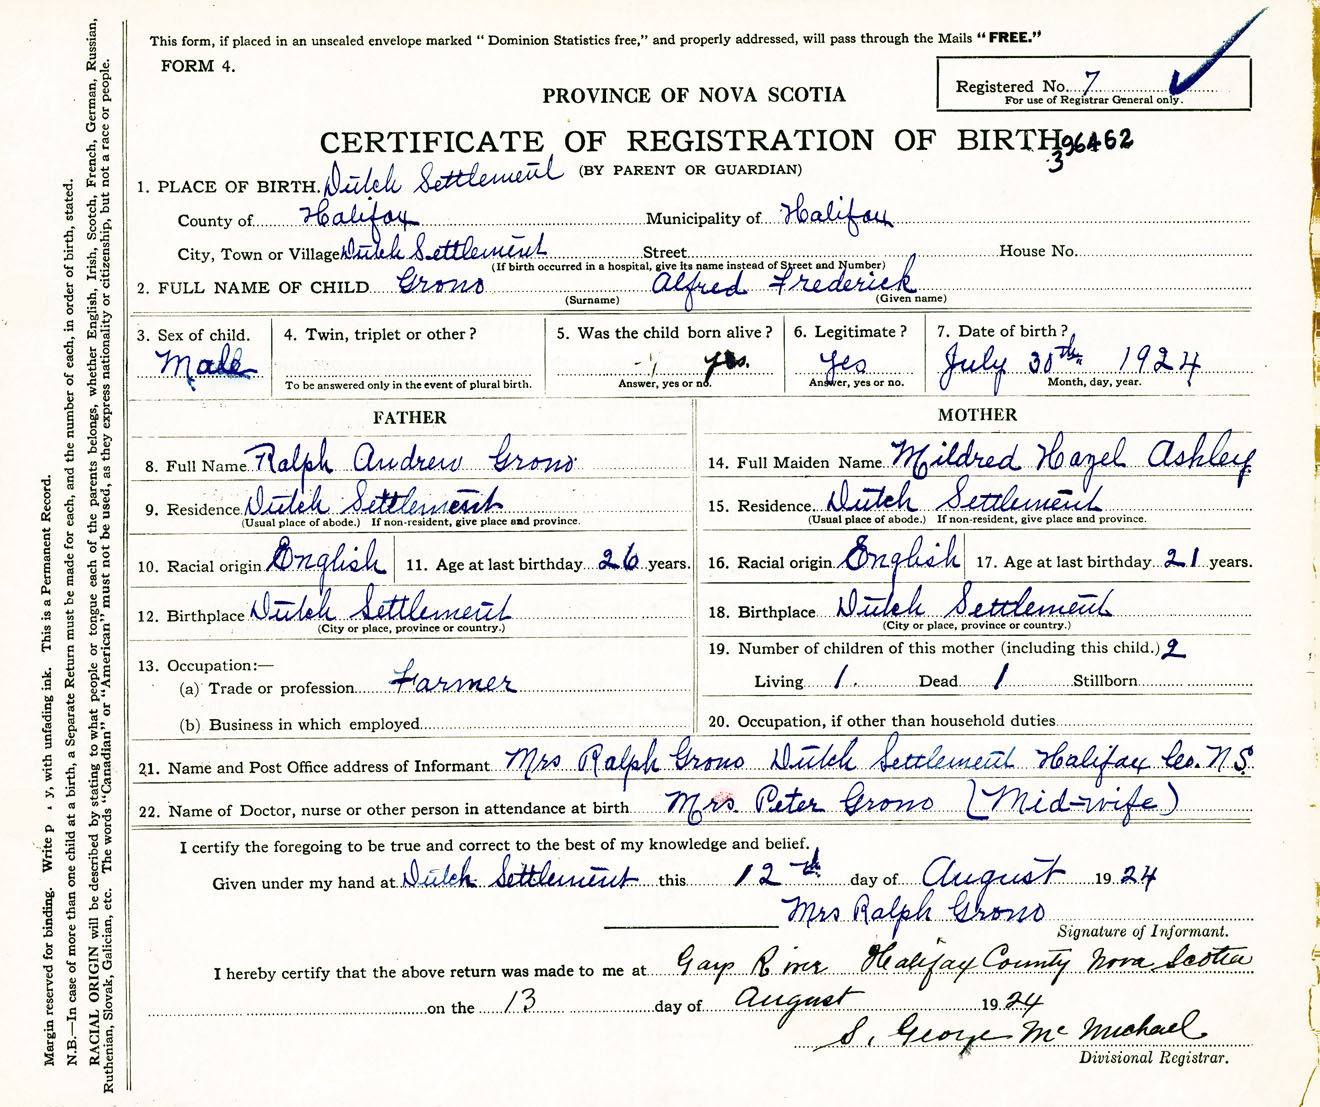 This form, if placed in an unsealed envelope marked “ Dominion Statistics free,” and properly addressed, will pass through the Mails “FREE.”
FORM 4.
Registered No. 7
For use of Registrar General only.
PROVINCE OF NOVA SCOTIA
CERTIFICATE OF REGISTRATION OF BIRTH
396462
(BY PARENT OR GUARDIAN)
1. PLACE OF BIRTH. Dutch Settlement
County of Halifax Municipality of Halifax
City, Town or Village Dutch Settlement Street House No.
(If birth occurred in a hospital, give its name instead of Street and Number)
2. FULL NAME OF CHILD Grono Alfred Frederick
(Surname) (Given name)
3. Sex of child. 4. Twin, triplet or other ? 5. Was the child born alive ? 6. Legitimate ? 7. Date of birth ?
Male yes. yes July 30th 1924
To be answered only in the event of plural birth. Answer, yes or no. Answer, yes or no. Month, day, year.
FATHER MOTHER
8. Full Name Ralph Andrew Grono 14. Full Maiden Name Mildred Hazel Ashley
9. Residence Dutch Settlement 15. Residence Dutch Settlement
(Usual place of abode.) If non-resident, give place and province. (Usual place of abode.) If non-resident, give place and province.
10. Racial origin English 11. Age at last birthday 26 years. 16. Racial origin English 17. Age at last birthday 21 years.
12. Birthplace Dutch Settlement 18. Birthplace Dutch Settlement
(City or place, province or country.) (City or place, province or country.)
13. Occupation:— 19. Number of children of this mother (including this child.) 2
(a) Trade or profession Farmer Living 1. Dead 1 Stillborn
(b) Business in which employed 20. Occupation, if other than household duties
21. Name and Post Office address of Informant Mrs Ralph Grono Dutch Settlement Halifax Co. N.S.
22. Name of Doctor, nurse or other person in attendance at birth Mrs. Peter Grono (Mid-wife)
I certify the foregoing to be true and correct to the best of my knowledge and belief.
Given under my hand at Dutch Settlement this 12th day of August 1924
Mrs Ralph Grono
Signature of Informant.
I hereby certify that the above return was made to me at Gays River Halifax County Nova Scotia
on the 13 day of August 1924
S. George McMichael
Divisional Registrar.
Margin reserved for binding. Write p y, with unfading ink. This is a Permanent Record.
N.B.—In case of more than one child at a birth, a Separate Return must be made for each, and the number of each, in order of birth, stated.
RACIAL ORIGIN will be described by stating to what people or tongue each of the parents belongs, whether English, Irish, Scotch, French, German, Russian,
Ruthenian, Slovak, Galician, etc. The words “Canadian” or “American” must not be used, as they express nationality or citizenship, but not a race or people.